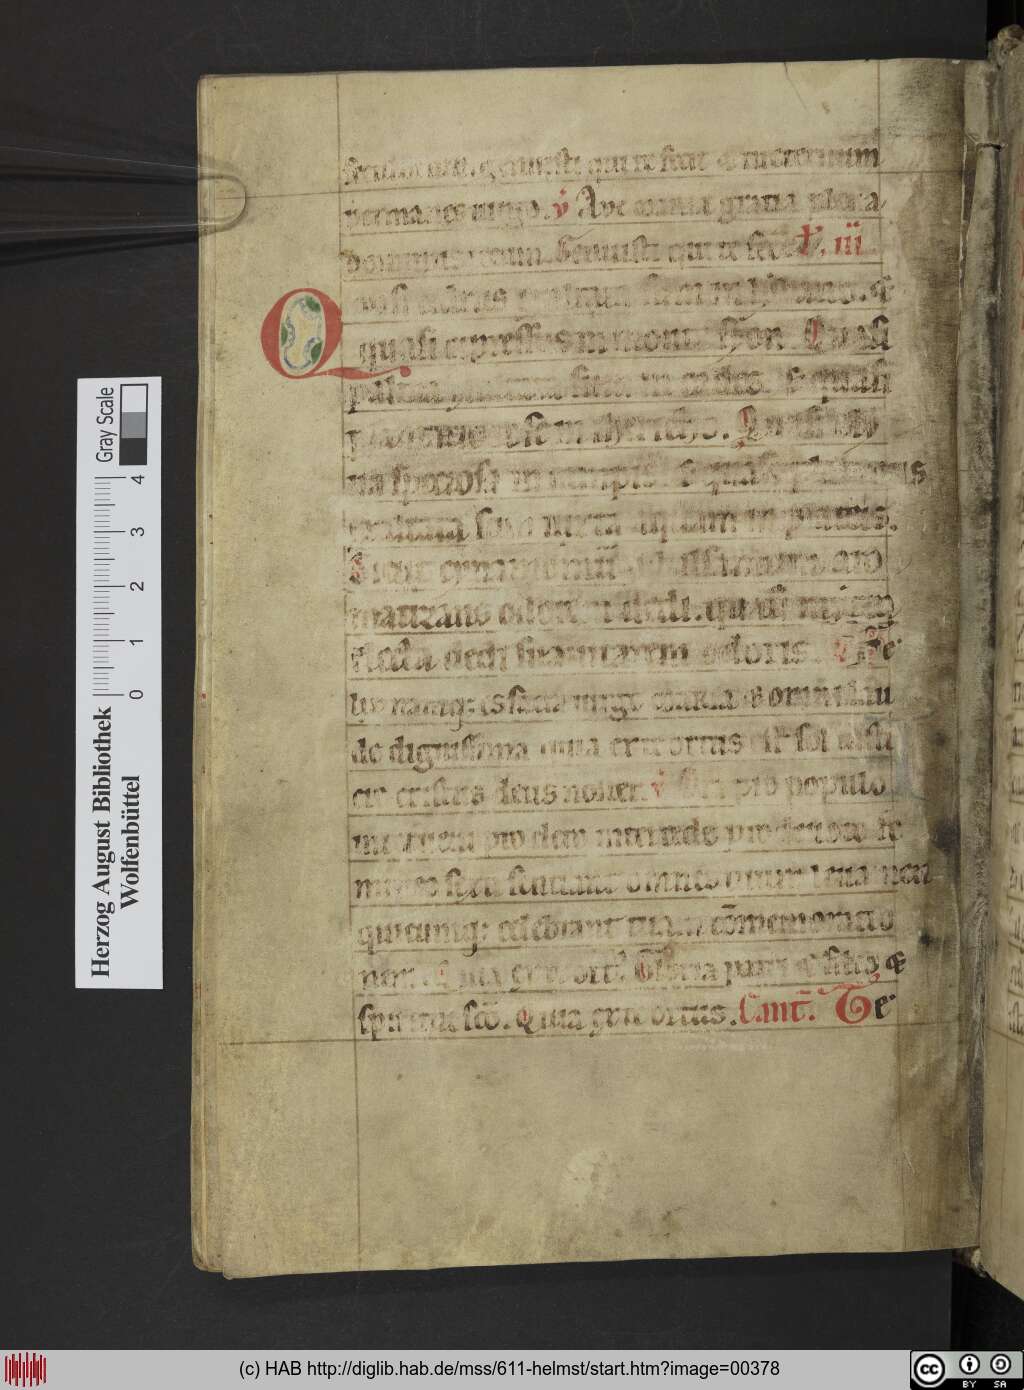 qui te fecit & in eternum
permanes uirgo. v̇ Aue maria gratia plena
dominus tecum. Genuisti qui te fec. L. iii
Quasi cedrus exaltata sum in lybano. &
quasi cypressus in monte syon. Quasi
palma exaltata sum in cades. & quasi
plantatio rose in iericho. Quasi oli
ua speciosa in campis. & quasi platanus
exaltata sum iuxta aquam in plateis.
Sicut cinnamomū. & balsamum aro
matizans odorem dedi. quasi mirra
electa dedi suauitatem odoris. R̄ Fe
lix namq; es sacra uirgo maria & omni lau
de dignissima. quia ex te ortus est sol iusti
cie cristus deus noster. v̇ Ora pro populo
interueni pro clero intercede pro deuoto fe
mineo sexu sentiant omnes tuum leuamen
quicumq; celebrant tuam cōmemoratio
nem. Quia ex te ort. Gloria patri & filio &
spiritui scō. Quia ex te ortus. Cant. Te
Herzog August Bibliothek
Wolfenbüttel
0 1 2 3 4
Gray Scale
(c) HAB http://diglib.hab.de/mss/611-helmst/start.htm?image=00378
cc BY SA